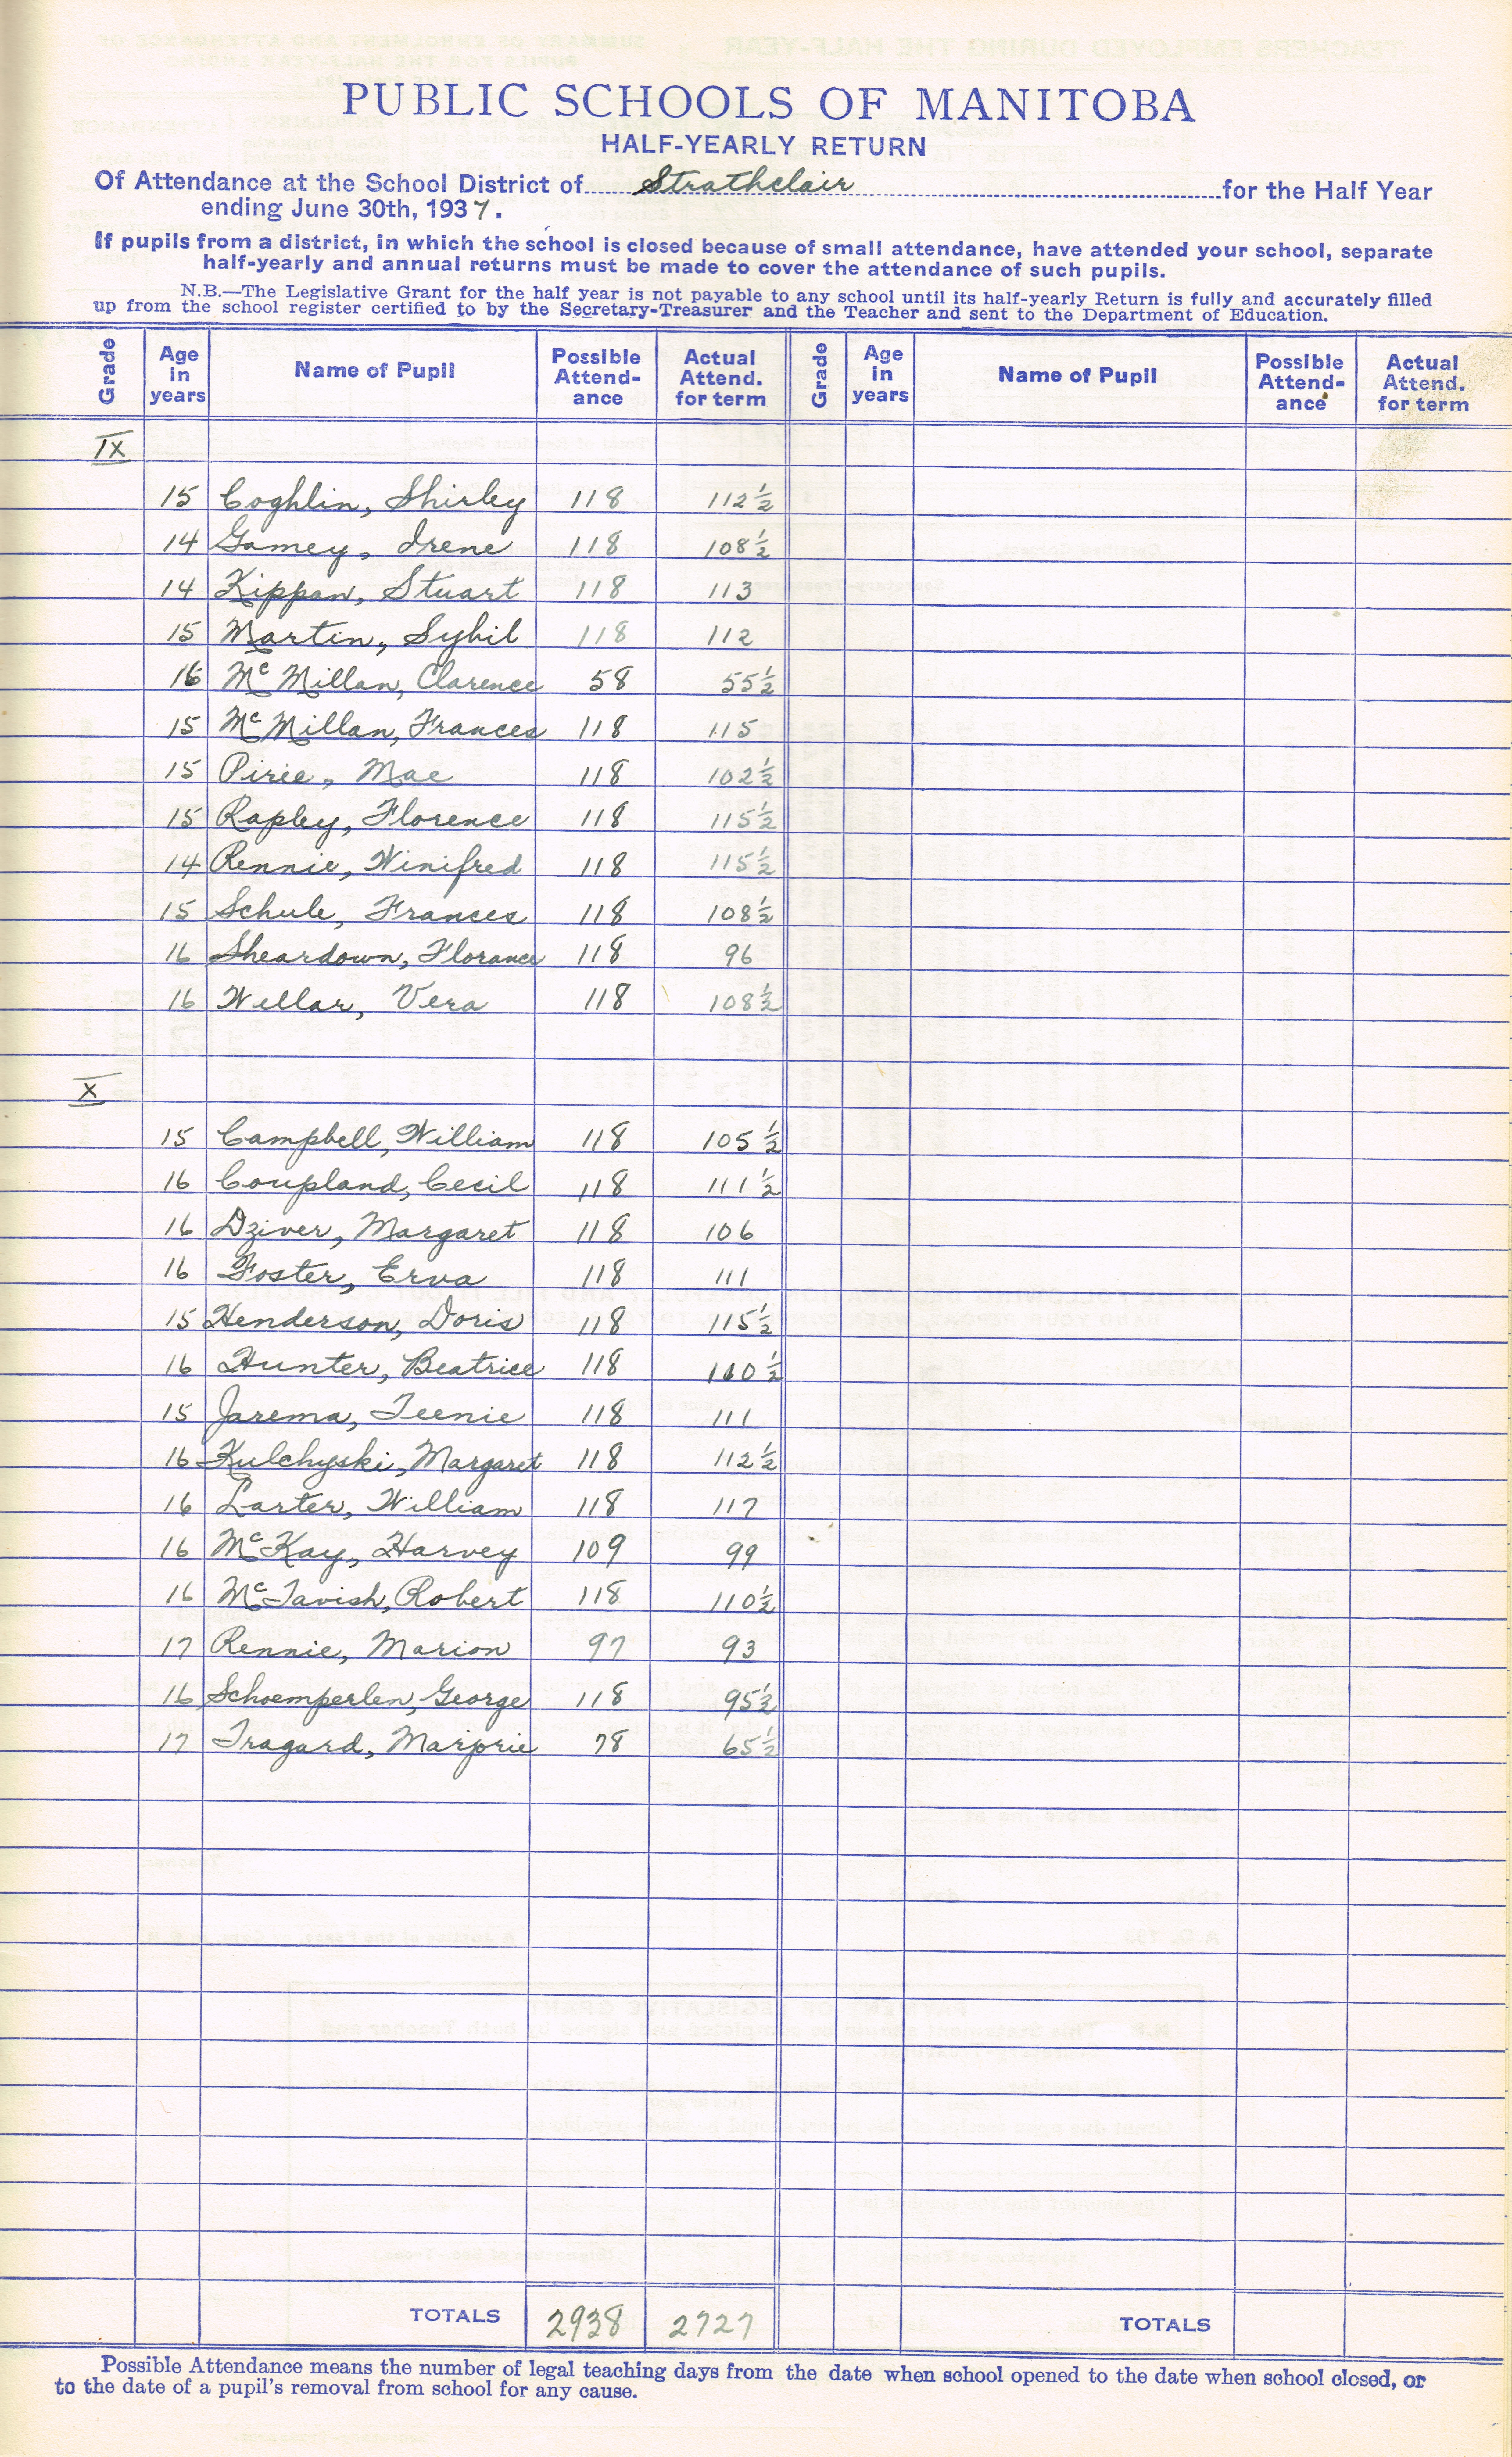 PUBLIC SCHOOLS OF MANITOBA
HALF-YEARLY RETURN
Of Attendance at the School District of Strathclair for the Half Year
ending June 30th, 1937.
If pupils from a district, in which the school is closed because of small attendance, have attended your school, separate
half-yearly and annual returns must be made to cover the attendance of such pupils.
N.B.—The Legislative Grant for the half year is not payable to any school until its half-yearly Return is fully and accurately filled
up from the school register certified to by the Secretary-Treasurer and the Teacher and sent to the Department of Education.
Grade Age in years Name of Pupil Possible Attend-ance Actual Attend. for term Grade Age in years Name of Pupil Possible Attend-ance Actual Attend. for term
IX
15 Coghlin, Shirley 118 112½
14 Gamey, Irene 118 108½
14 Kippan, Stuart 118 113
15 Martin, Sybil 118 112
16 McMillan, Clarence 58 55½
15 McMillan, Frances 118 115
15 Pirie, Mae 118 102½
15 Rapley, Florence 118 115½
14 Rennie, Winifred 118 115½
15 Schule, Frances 118 108½
16 Sheardown, Florance 118 96
16 Wellar, Vera 118 108½
X
15 Campbell, William 118 105½
16 Coupland, Cecil 118 111½
16 Dziver, Margaret 118 106
16 Foster, Erva 118 111
15 Henderson, Doris 118 115½
16 Hunter, Beatrice 118 110½
15 Jarema, Teenie 118 111
16 Kulchyski, Margaret 118 112½
16 Larter, William 118 117
16 McKay, Harvey 109 99
16 McTavish, Robert 118 110½
17 Rennie, Marion 97 93
16 Schoemperlen, George 118 95½
17 Tragard, Marjorie 78 65½
TOTALS 2938 2727 TOTALS
Possible Attendance means the number of legal teaching days from the date when school opened to the date when school closed, or
to the date of a pupil's removal from school for any cause.